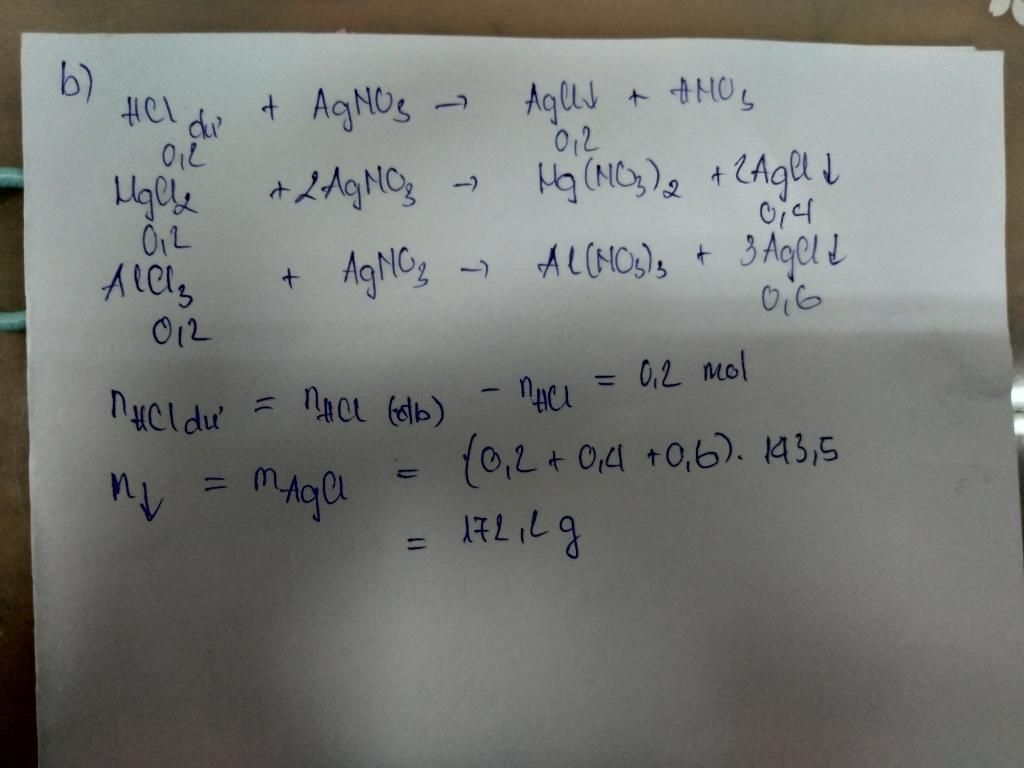 b)
HCl dư + AgNO3 → AgCl↓ + HNO3
0,2 0,2
MgCl2 + 2AgNO3 → Mg(NO3)2 + 2AgCl↓
0,2 0,4
AlCl3 + AgNO3 → Al(NO3)3 + 3AgCl↓
0,2 0,6
nHCl dư = nHCl (đb) - nHCl = 0,2 mol
m↓ = mAgCl = (0,2 + 0,4 + 0,6). 143,5
= 172,2 g